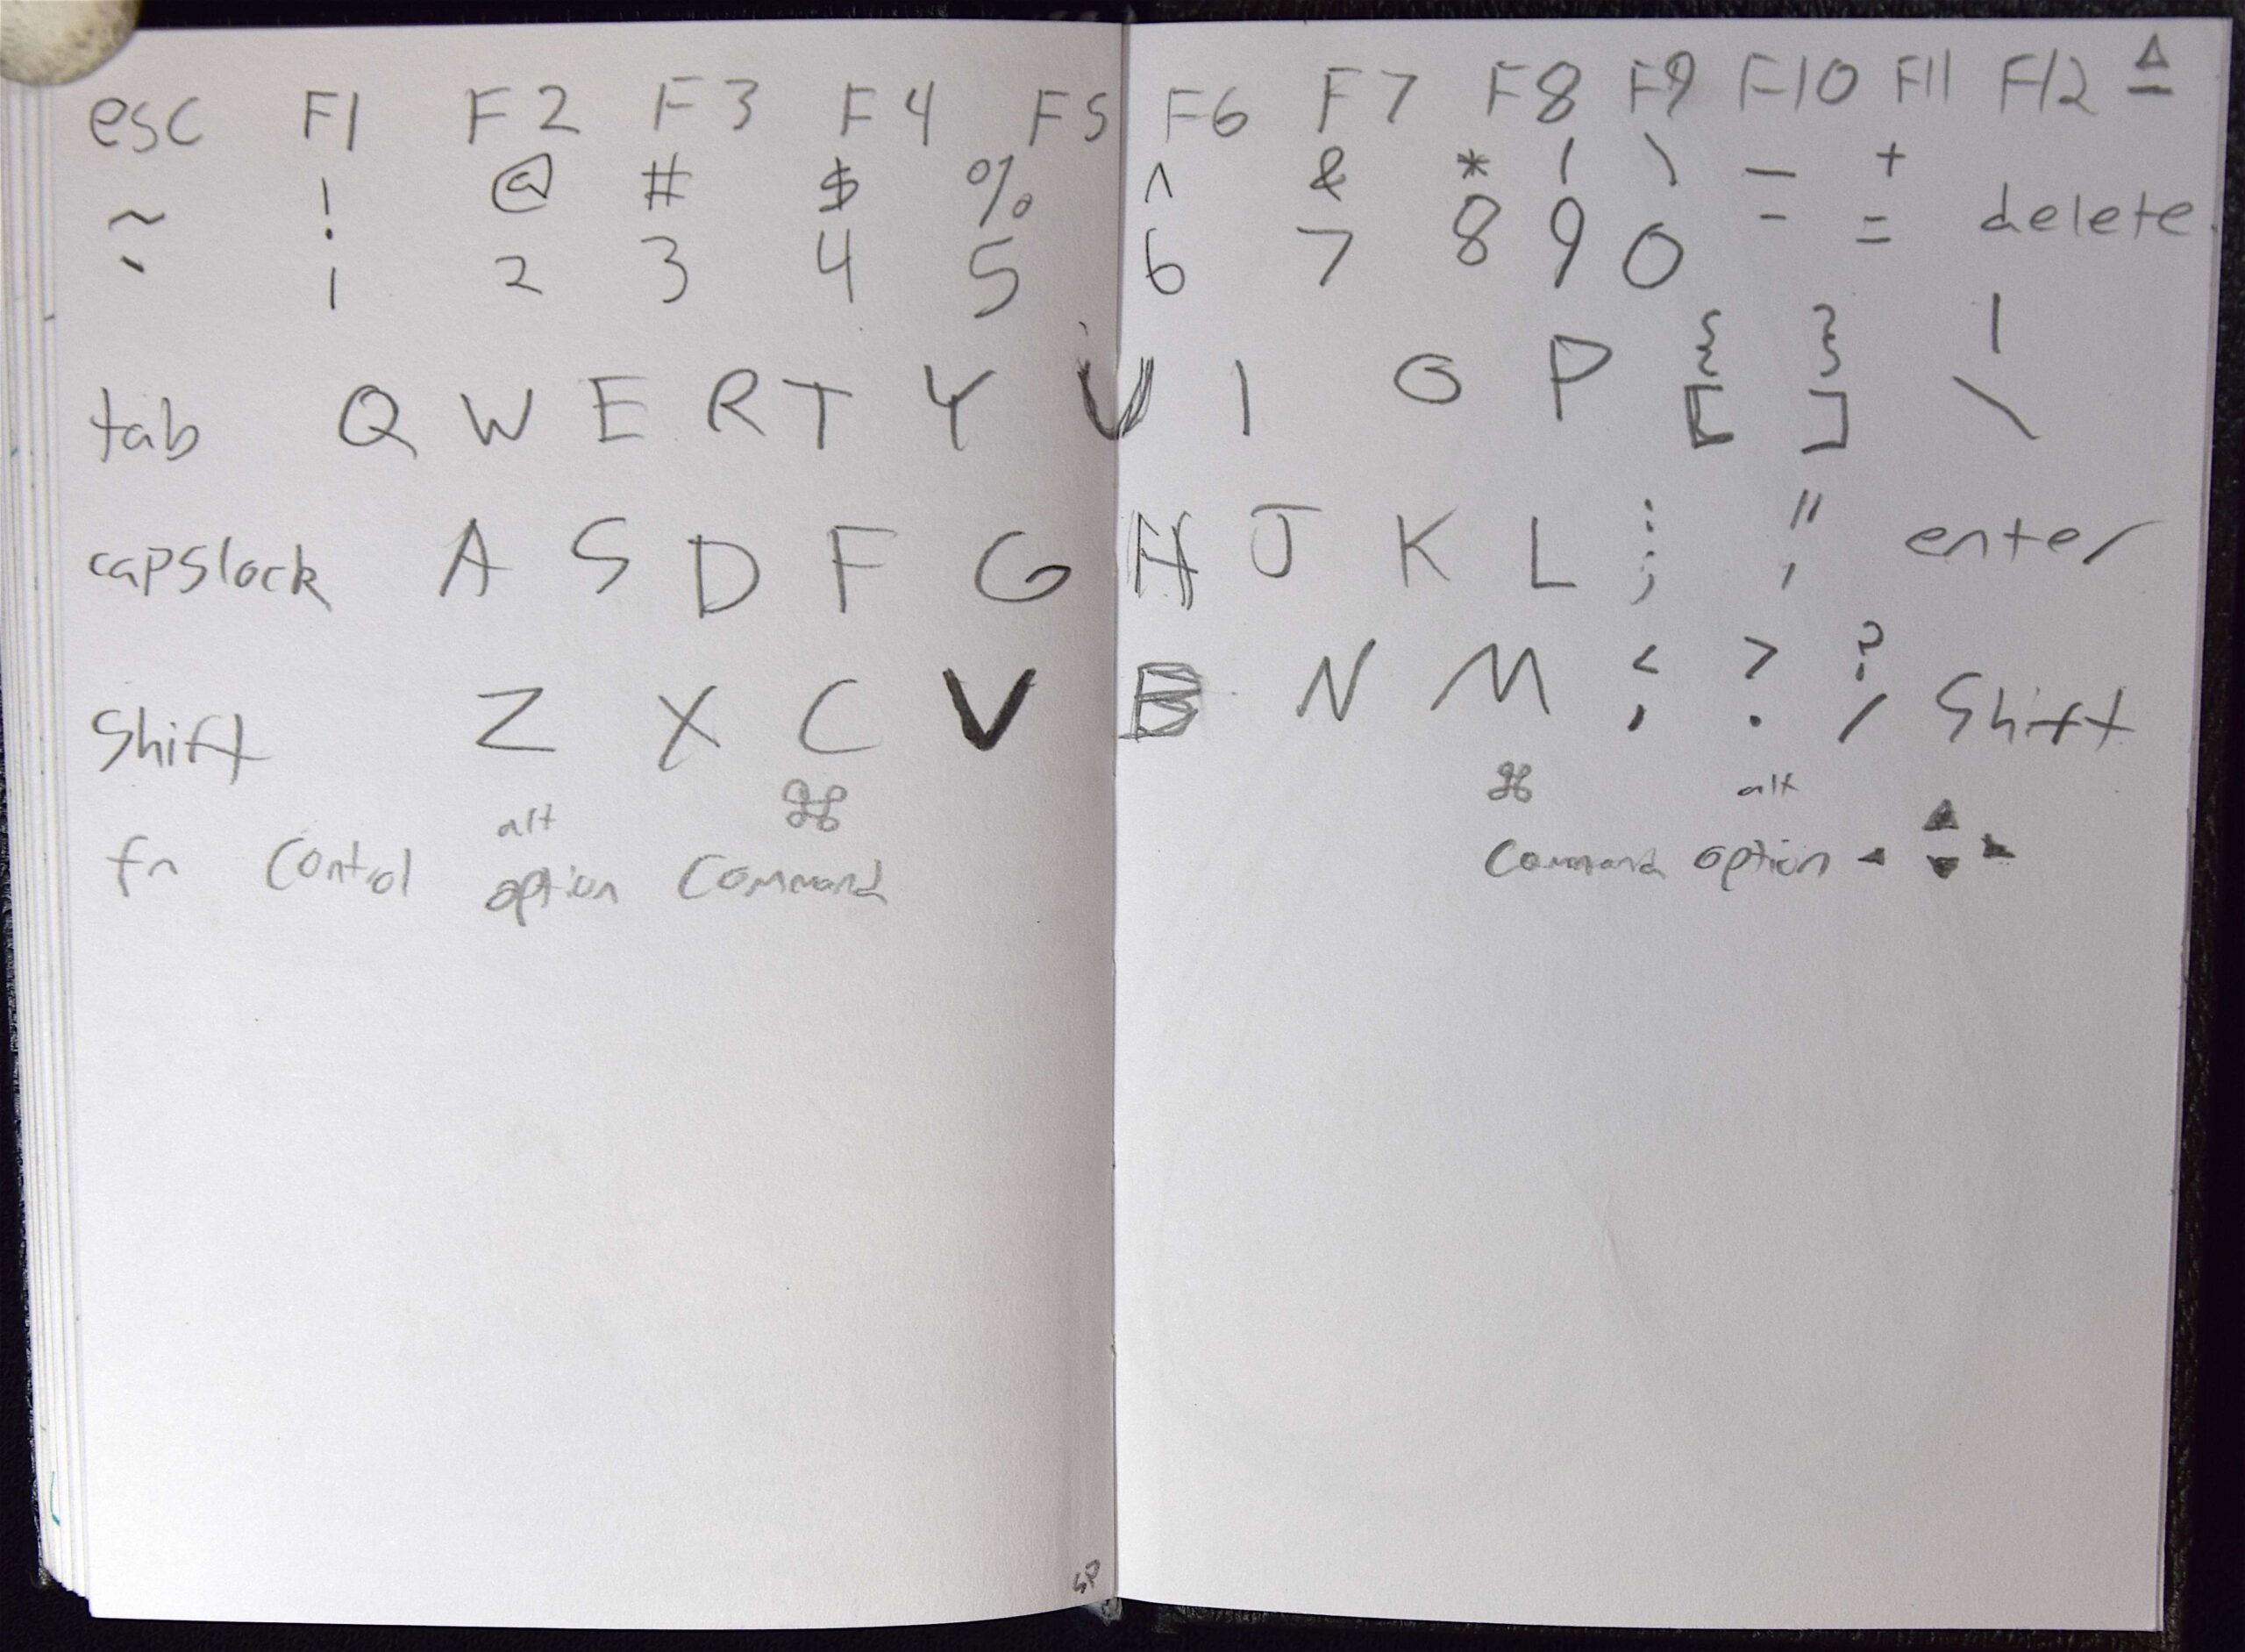 esc F1 F2 F3 F4 F5 F6 F7 F8 F9 F10 F11 F12 ⏏
~ ! @ # $ % ^ & * ( ) — +
` 1 2 3 4 5 6 7 8 9 0 - = delete
{ } |
tab Q W E R T Y U I O P [ ] \
: "
capslock A S D F G H J K L ; ' enter
< > ?
Shift Z X C V B N M , . / Shift
alt ⌘ ⌘ alt ▲
fn Control option Command Command option ◄ ▼ ►